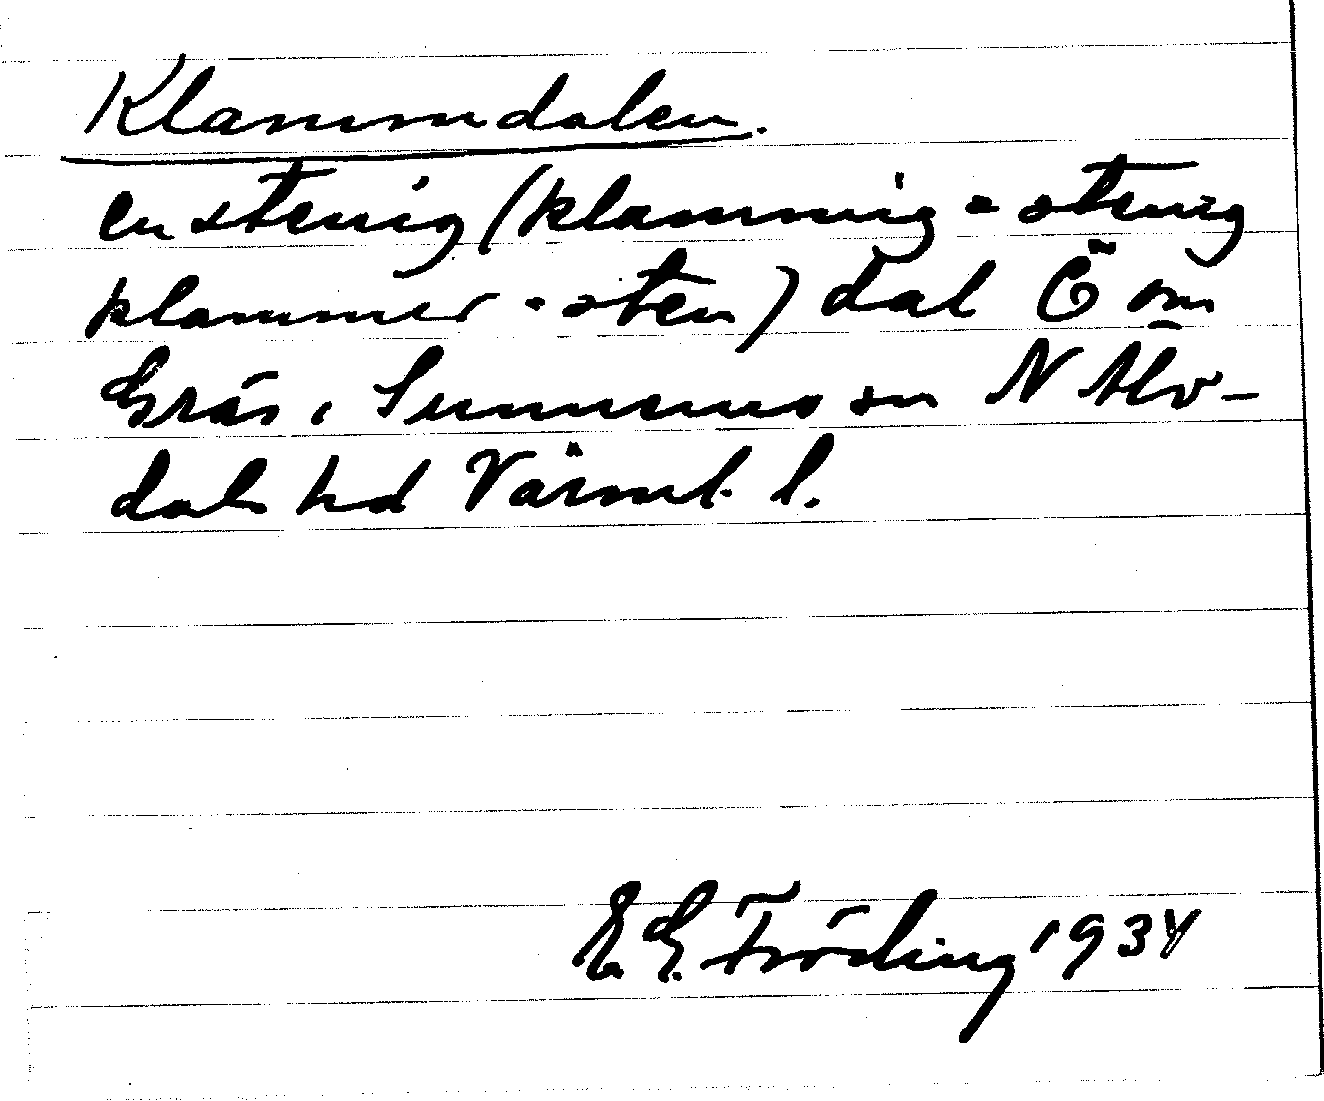 Klammdalen.
en stenig (klammig = stenig
klammer = sten) dal Ö om
Gräs, Sunnemo sn N Älv-
dals hd Värml. l.
E. G. Fröding 1934